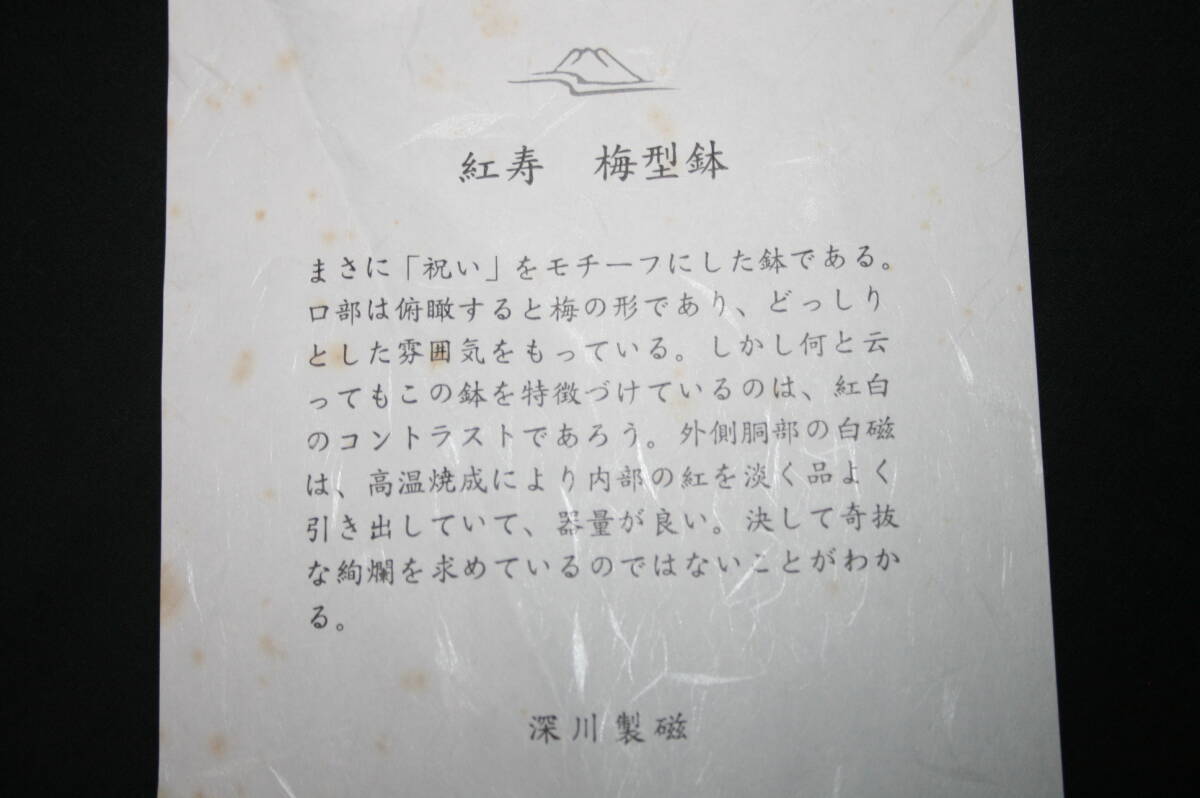 紅寿　梅型鉢
まさに「祝い」をモチーフにした鉢である。
口部は俯瞰すると梅の形であり、どっしり
とした雰囲気をもっている。しかし何と云
ってもこの鉢を特徴づけているのは、紅白
のコントラストであろう。外側胴部の白磁
は、高温焼成により内部の紅を淡く品よく
引き出していて、器量が良い。決して奇抜
な絢爛を求めているのではないことがわか
る。
深川製磁